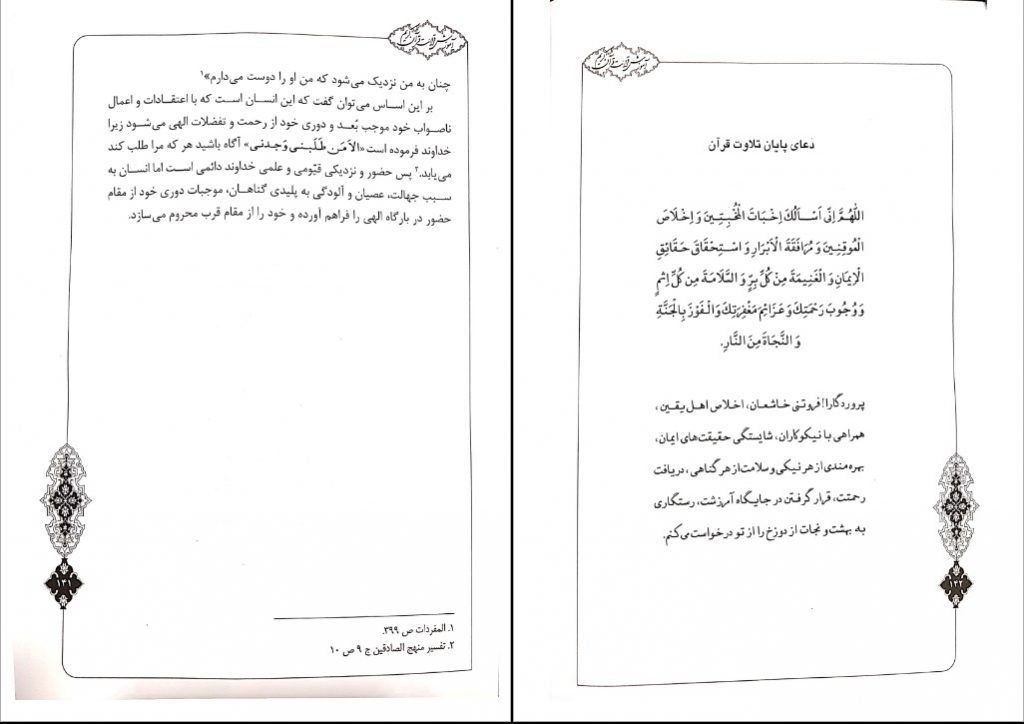 آموزش قرائت قرآن کریم
چنان به من نزدیک می‌شود که من او را دوست می‌دارم»۱
بر این اساس می‌توان گفت که این انسان است که با اعتقادات و اعمال
ناصواب خود موجب بُعد و دوری خود از رحمت و تفضلات الهی می‌شود زیرا
خداوند فرموده است «اَلا مَن طَلَبنی وَجدنی» آگاه باشید هر که مرا طلب کند
می‌یابد.۲ پس حضور و نزدیکی قیّومی و علمی خداوند دائمی است اما انسان به
سبب جهالت، عصیان و آلودگی به پلیدی گناهان، موجبات دوری خود از مقام
حضور در بارگاه الهی را فراهم آورده و خود را از مقام قرب محروم می‌سازد.
۱. المفردات ص ۳۹۹.
۲. تفسیر منهج الصادقین ج ۹ ص ۱۰
۱۲۱
آموزش قرائت قرآن کریم
دعای پایان تلاوت قرآن
اَللّٰهُمَّ اِنّی اَسْاَلُكَ اِخْبَاتَ الْمُخْبِتِينَ وَ اِخْلَاصَ
الْمُوقِنِينَ وَ مُرَافَقَةَ الْاَبْرَارِ وَ اسْتِحْقَاقَ حَقَائِقِ
الْاِيمَانِ وَ الْغَنِيمَةَ مِنْ كُلِّ بِرٍّ وَ السَّلَامَةَ مِن كُلِّ اِثْمٍ
وَ وُجُوبَ رَحْمَتِكَ وَ عَزَائِمَ مَغْفِرَتِكَ وَ الْفَوْزَ بِالْجَنَّةِ
وَ النَّجَاةَ مِنَ النَّارِ.
پروردگارا! فروتنی خاشعان، اخلاص اهل یقین،
همراهی با نیکوکاران، شایستگی حقیقت‌های ایمان،
بهره‌مندی از هر نیکی و سلامت از هر گناهی، دریافت
رحمتت، قرار گرفتن در جایگاه آمرزشت، رستگاری
به بهشت و نجات از دوزخ را از تو درخواست می‌کنم.
۱۲۲